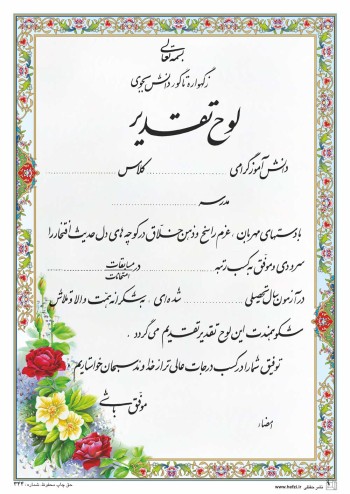 بسمه تعالی
زگهواره تا گور دانش بجوی
لوح تقدیر
دانش آموز گرامی ........ کلاس ........
مدرسه ........
با دستهای مهربان ، عزم راسخ و ذهن خلاق در کوچه های دل حدیث افتخار را
سرودی و موفق به کسب رتبه ........ در مسابقات امتحانات
در آزمون سال تحصیلی ........ شده ای . بیکرانه همت والا و تلاش
شکوهمندت این لوح تقدیر تقدیم می گردد .
توفیق شما را در کسب درجات عالی تر از خداوند سبحان خواستاریم .
موفق باشی
امضاء
حق چاپ محفوظ شماره : ۳۴۴
www.hafzi.ir